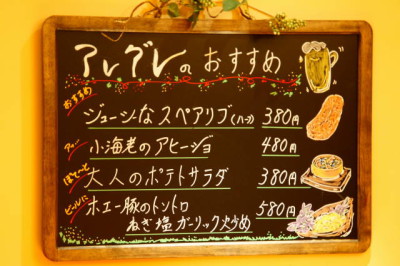 アレグレのおすすめ
おすすめ
ジューシーなスペアリブ(ハーフ) 380円
小海老のアヒージョ 480円
大人のポテトサラダ 380円
ビールに
ホエー豚のトントロ 580円
ねぎ塩ガーリック炒め